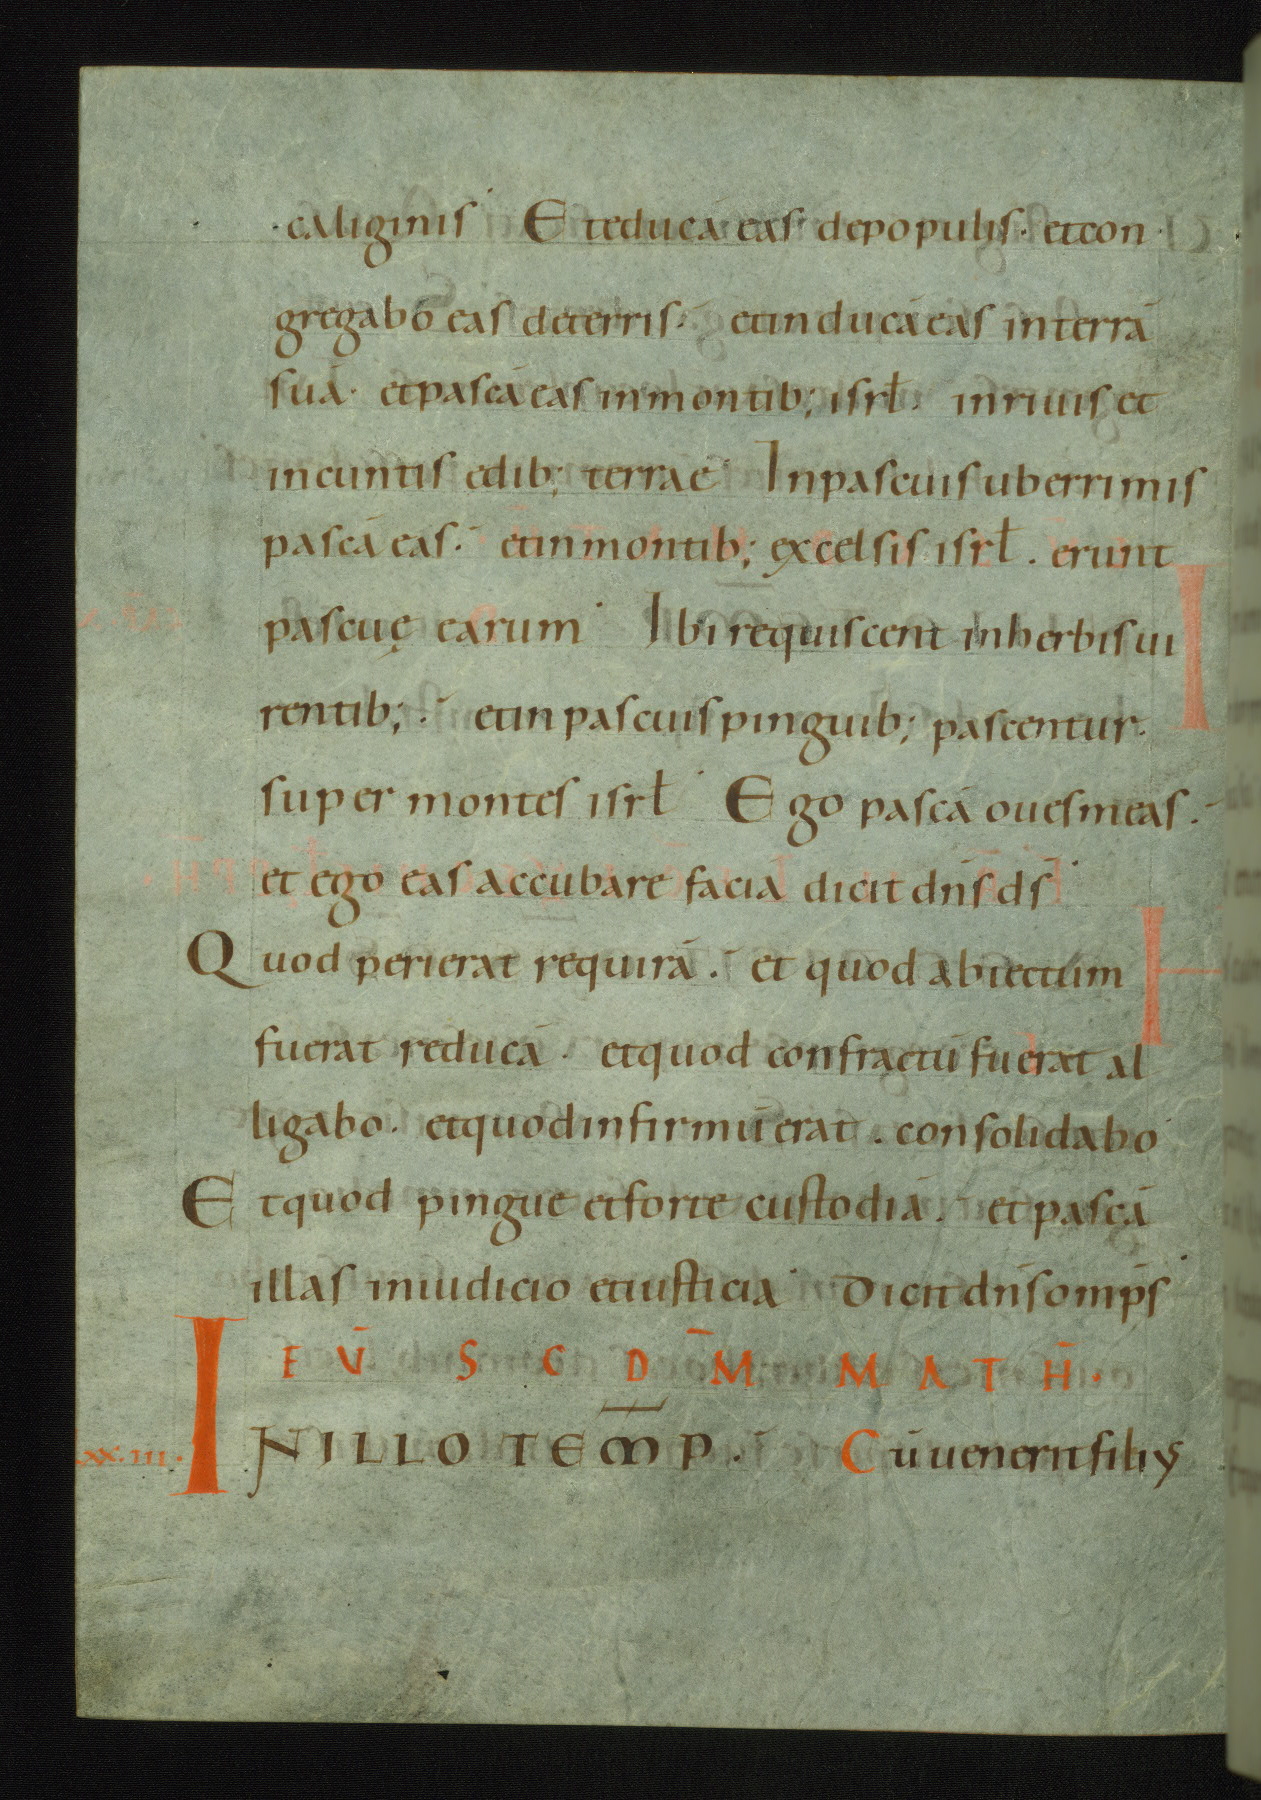 caliginis. Et educā eas de populis. et con
gregabo eas de terris. et inducā eas in terrā
suā. et pascā eas in montib; isrł. in riuis et
in cunctis sedib; terrae. In pascuis uberrimis
pascā eas. et in montib; excelsis isrł. erunt
pascuę earum. Ibi requiscent in herbis ui
rentib;. et in pascuis pinguib; pascentur.
super montes isrł. Ego pascā oues meas.
et ego eas accubare faciā dicit dn̄s ds̄.
Quod perierat requirā. et quod abiectum
fuerat reducā. et quod confractū fuerat al
ligabo. et quod infirmū erat. consolidabo
Et quod pingue et forte custodiā. et pascā
illas in iudicio et iusticia. Dicit dn̄s omp̄s
EṼ SCDM̄ MATH̄.
xx.iii. IN ILLO TEM̄P. Cū uenerit filiꝰ